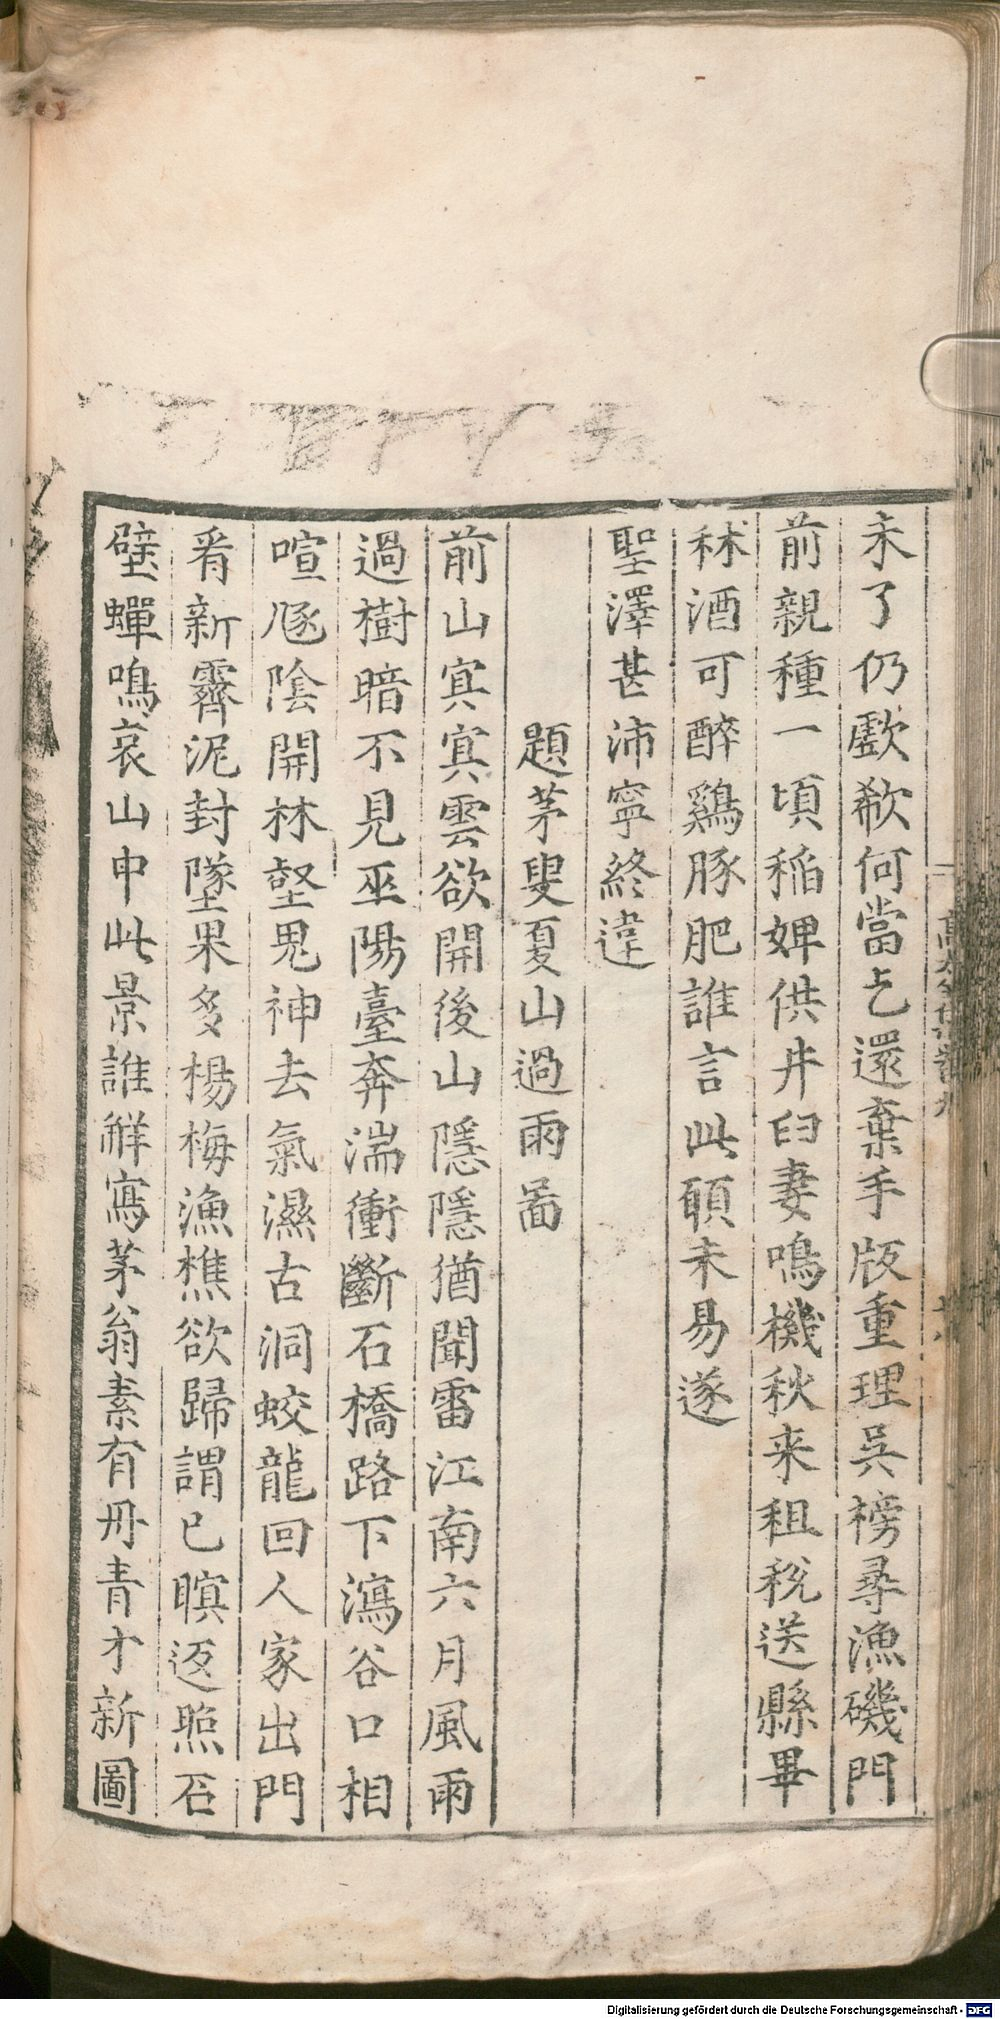 未了仍歔欷何當乞還棄手版重理吳榜尋漁磯門
前親種一頃稲婢供井臼妻鳴機秋来租税送縣畢
秫酒可醉鷄豚肥誰言此願未易遂
聖澤甚沛寧終違
題茅叟夏山過雨啚
前山㝠㝠雲欲開後山隱隱猶聞雷江南六月風雨
過樹暗不見巫陽臺奔湍衝斷石橋路下瀉谷口相
喧豗陰開林壑鬼神去氣濕古洞蛟龍回人家出門
看新霽泥封墜果多楊梅漁樵欲歸謂已暝返照石
壁蟬鳴哀山中此景誰能寫茅翁素有丹青才新圖
Digitalisierung gefördert durch die Deutsche Forschungsgemeinschaft - DFG